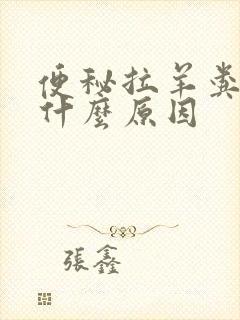 便秘拉羊粪
什麼原因
張鑫